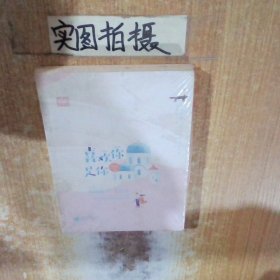 实图拍摄
喜欢你
是你